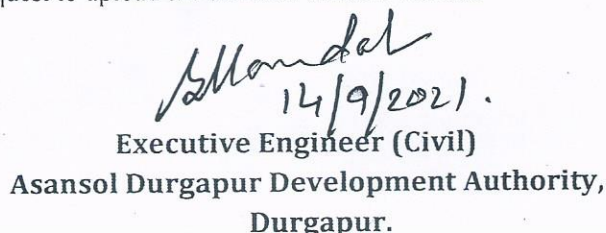 to
14/9/2021.
Executive Engineer (Civil)
Asansol Durgapur Development Authority,
Durgapur.